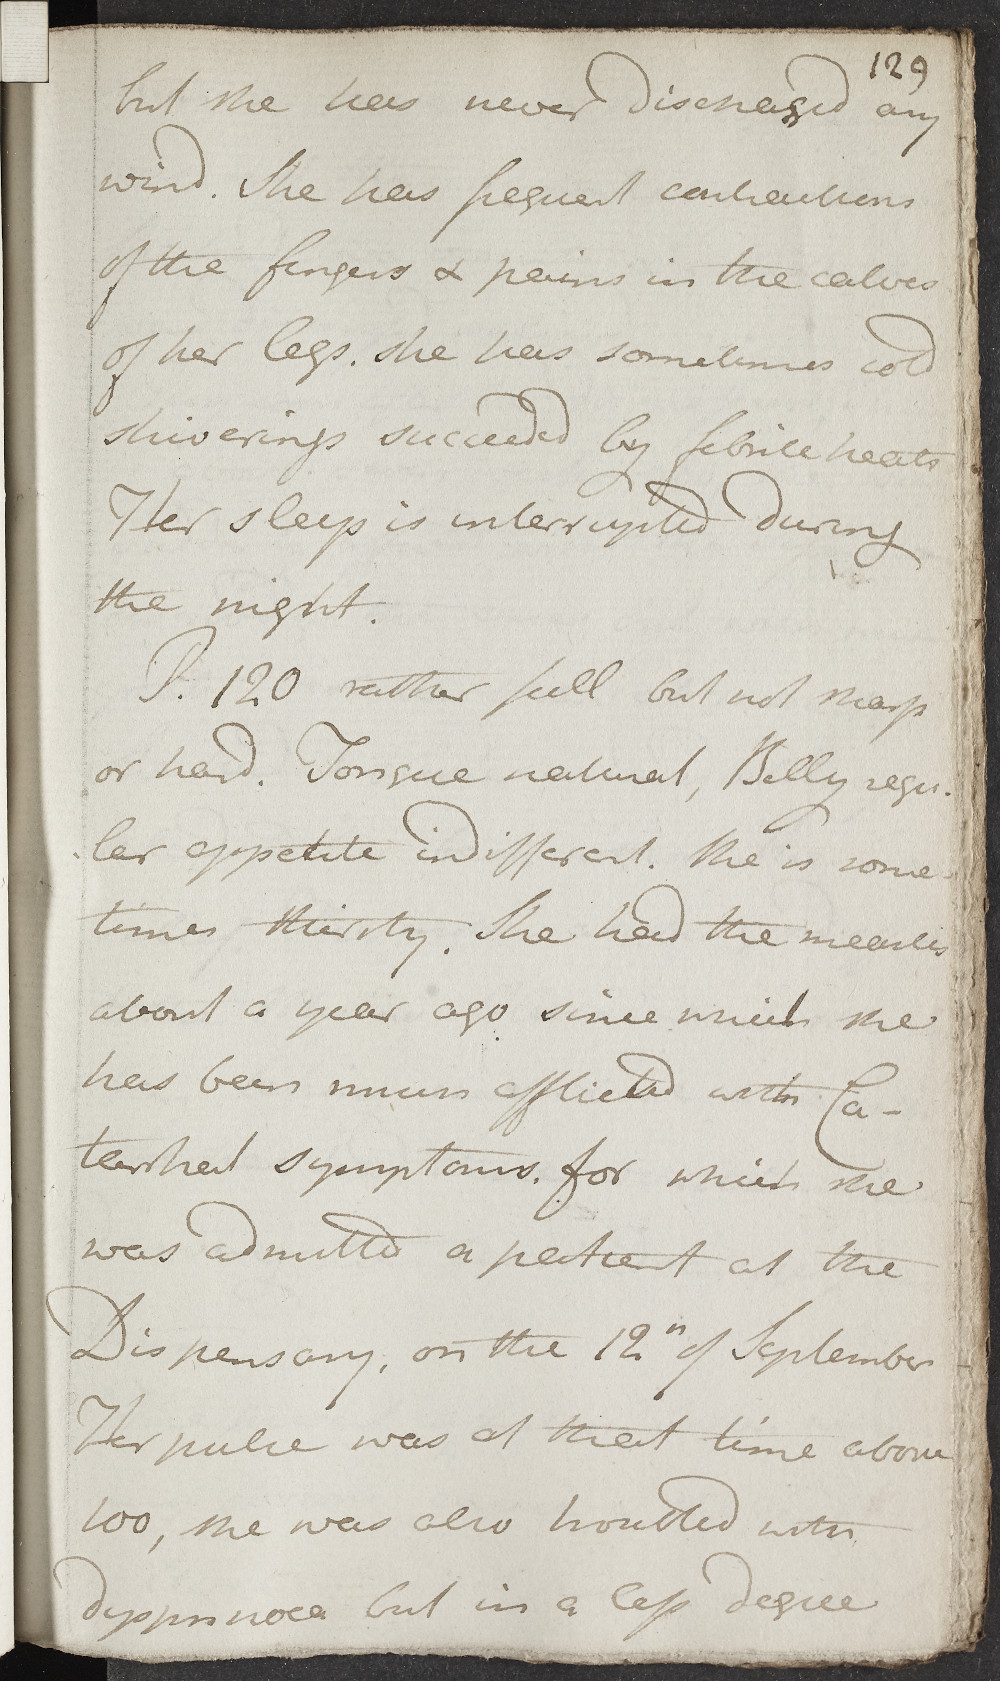 129
but she has never discharged any
wind. She has frequent contractions
of the fingers & pains in the calves
of her legs. she has sometimes cold
shiverings succeeded by febrile heats
Her sleep is interrupted during
the night.
P. 120 rather full but not sharp
or hard. Tongue natural, Belly regu-
lar appetite indifferent. She is some-
times thirsty. She had the measles
about a year ago since which she
has been much afflicted with Ca-
tarrhal symptoms. for which she
was admitted a patient at the
Dispensary, on the 12th of September
Her pulse was at that time above
100, she was also troubled with
dyspnnoea but in a less degree